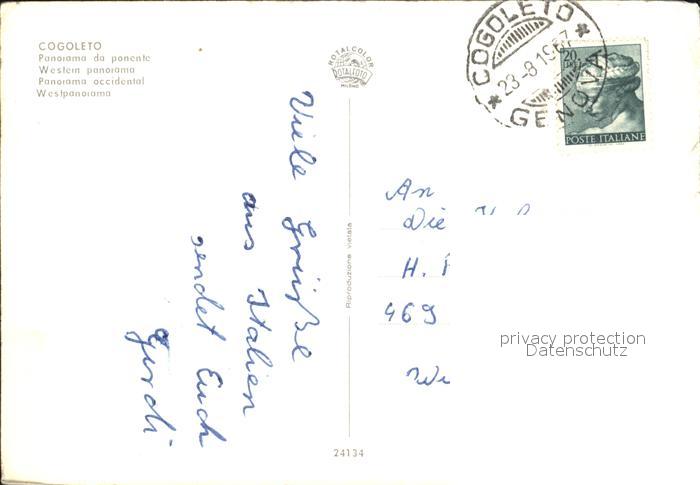 COGOLETO
Panorama da ponente
Western panorama
Panorama occidental
Westpanorama
ROTALCOLOR
ROTALFOTO
MILANO
COGOLETO
23-8 1967
GENOVA
20
POSTE ITALIANE
Viele Grüße
aus Italien
sendet Euch
Gerdi
Riproduzione vietata
An
Die
H.
469
privacy protection
Datenschutz
24134